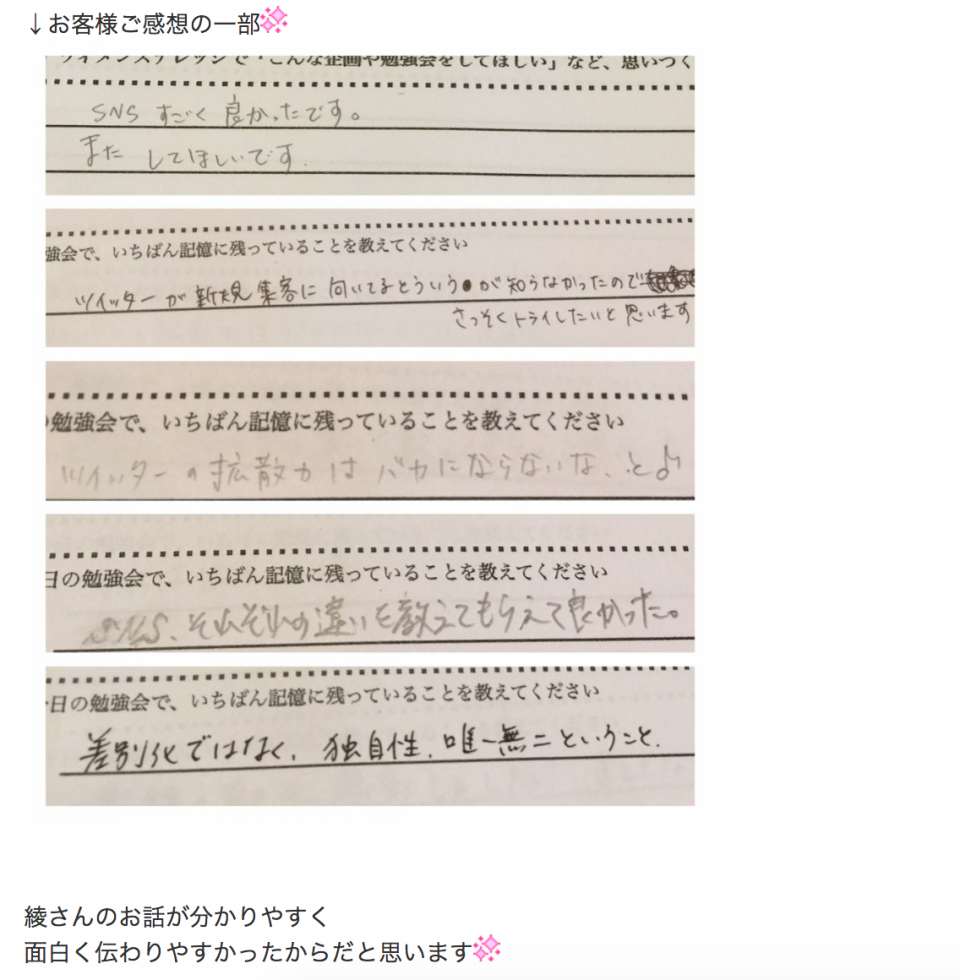 ↓お客様ご感想の一部
ウィメンズナレッジで「こんな企画や勉強会をしてほしい」など、思いつく
SNS すごく 良かったです。
また してほしいです.
強会で、いちばん記憶に残っていることを教えてください
ツイッターが新規集客に向いてるとういうが知らなかったので
さっそくトライしたいと思います
の勉強会で、いちばん記憶に残っていることを教えてください
ツイッターの拡散力はバカにならないな、と♪
日の勉強会で、いちばん記憶に残っていることを教えてください
SNS、それぞれの違いを教えてもらえて良かった。
日の勉強会で、いちばん記憶に残っていることを教えてください
差別化ではなく、独自性、唯一無二ということ.
綾さんのお話が分かりやすく
面白く伝わりやすかったからだと思います